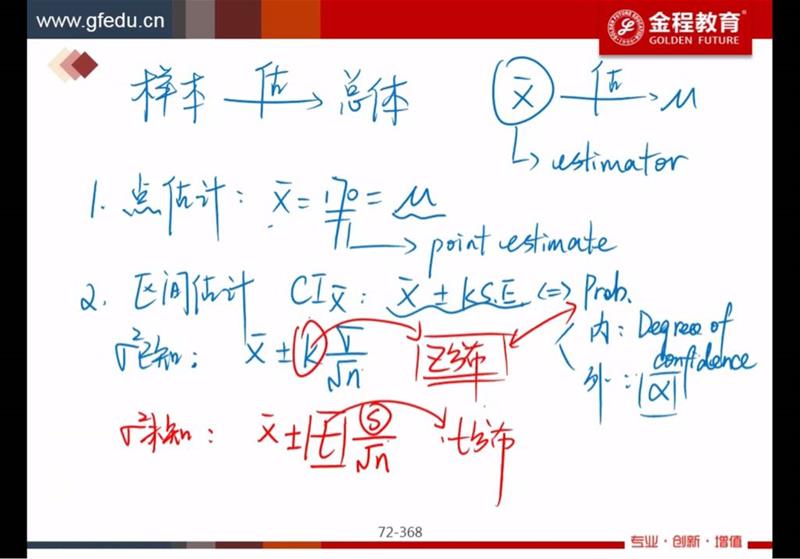 www.gfedu.cn
金程教育®
GOLDEN FUTURE
样本 估→ 总体
x̄ 估→ μ
↳ estimator
1. 点估计: x̄ = 170 = μ
→ point estimate
2. 区间估计 CIx̄: x̄ ± kS.E ⇔ Prob.
内: Degree of confidence
外: |α|
σ²已知: x̄ ± k σ/√n Z分布
σ²未知: x̄ ± |t| s/√n t分布
72-368
专业·创新·增值